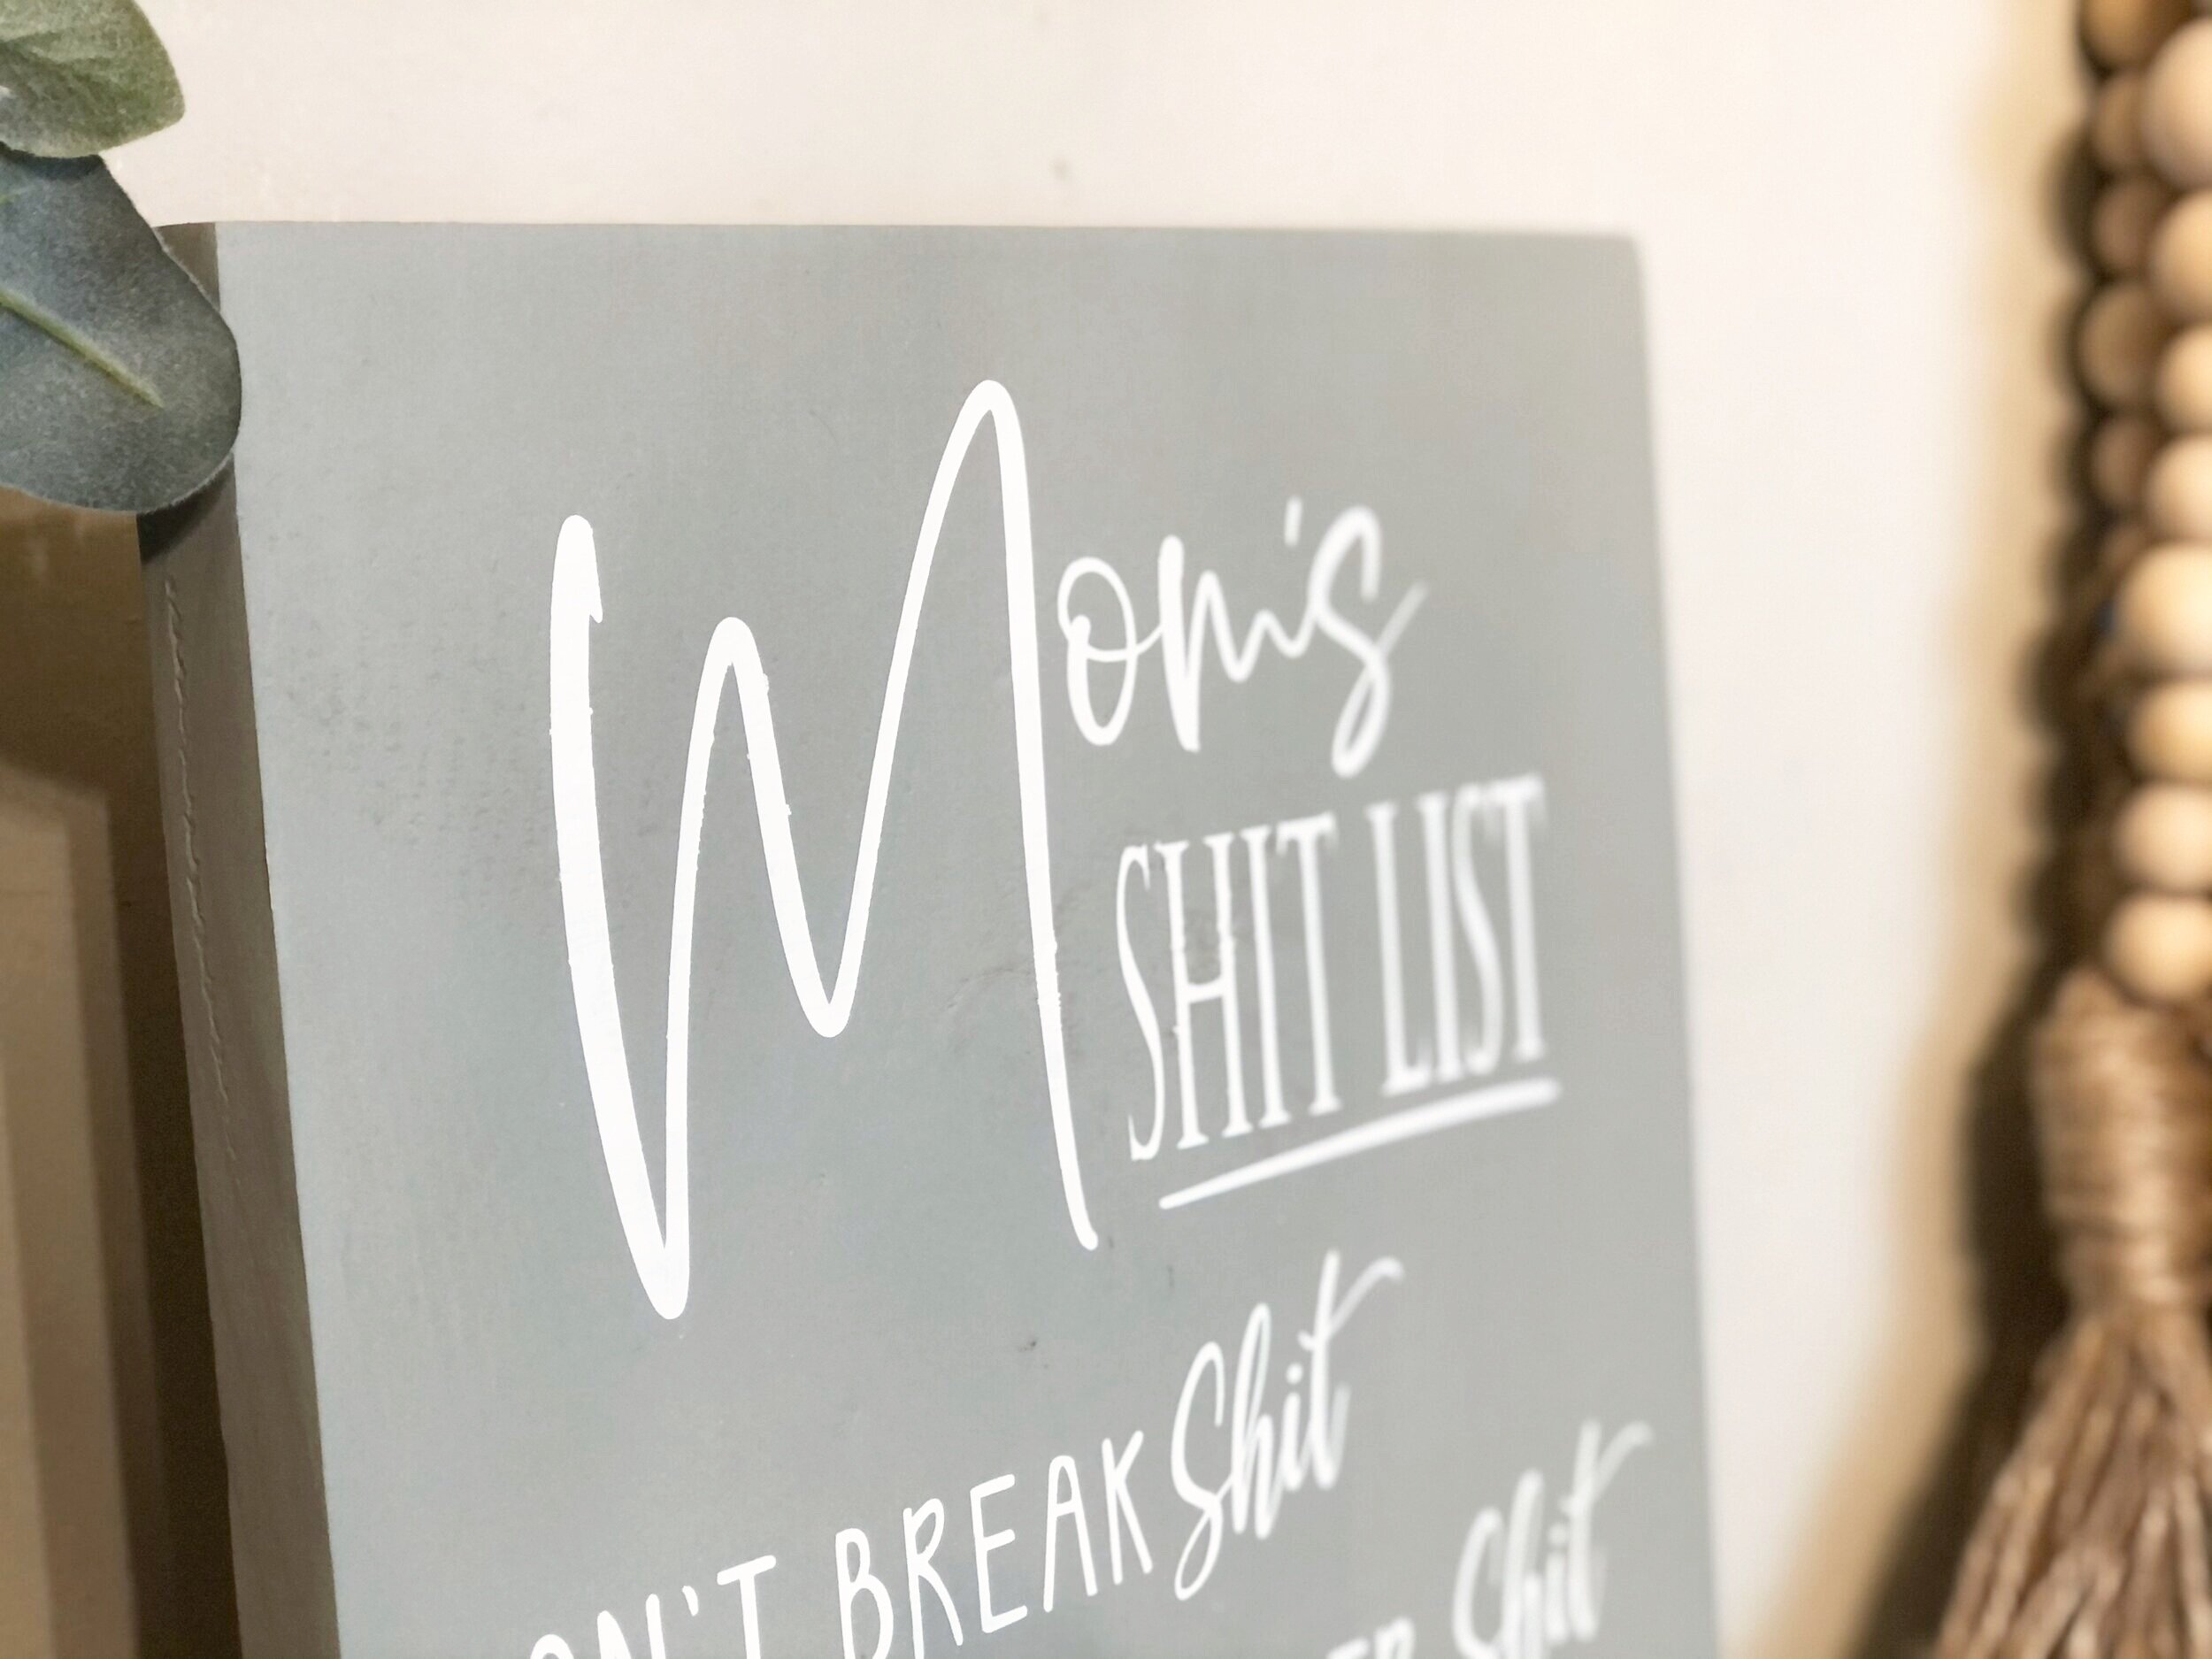 Mom's
SHIT LIST
ON'T BREAK Shit
Shit